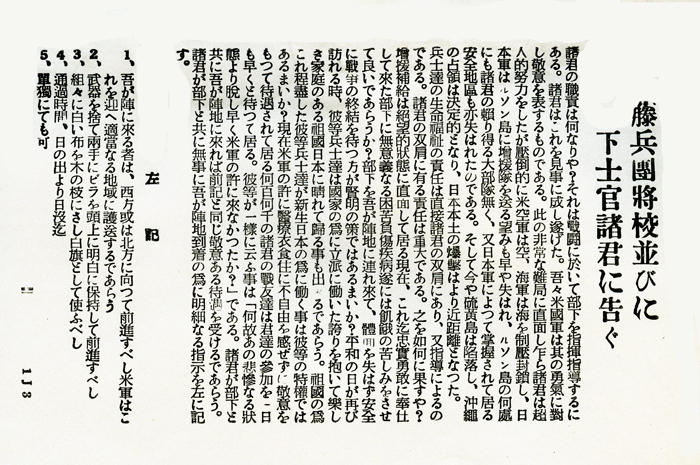 藤兵團將校並びに
下士官諸君に告ぐ
諸君の職責は何なりや？それは戰鬪に於いて部下を指揮指導するに
ある。諸君はこれを見事に成し遂げた。吾々米國軍は其の勇氣に對
し敬意を表するものである。此の非常な難局に直面し乍ら諸君は超
人的努力をしたが壓倒的に米空軍は空、海軍は海を制壓封鎖し、日
本軍はルソン島に增援隊を送る望みも早や失はれ、ルソン島の何處
にも諸君の賴り得る大部隊無く、又日本軍によつて掌握されて居る
安全地區も亦失はれたのである。そして今や硫黃島は陷落し、沖繩
の占領は決定的となり、日本本土の爆擊はより近距離となつた。
兵士達の生命福祉の責任は直接諸君の双肩にあり、又指導によるの
である。諸君の双肩に有る責任は重大である。之を如何に果すや？
增援補給は絕望的狀態に直面して居る現在、これ迄忠實勇敢に奉仕
して來た部下に無意義なる困苦負傷疾病遂には飢餓の苦しみをさせ
て良いであらうか？部下を吾が陣地に連れ來て、體面を失はず安全
に戰爭の終結を待つ方が賢明の策ではあるまいか？平和の日が再び
訪れる時、彼等兵士達は國家の爲に立派に働いた誇りを抱いて樂し
き家庭のある祖國日本に晴れて歸る事も出來るであらう。祖國の爲
これ程盡した彼等兵士達が新生日本の爲に働く事は彼等の特權では
あるまいか？現在米軍の許に醫療衣食住に不自由を感ぜずに敬意を
もつて待遇されて居る何百何千の諸君の戰友達は君達の參加を一日
も早くと待つて居る。彼等が一樣に云ふ事は「何故あの悲慘なる狀
態より脫し早く米軍の許に來なかつたか？」である。諸君が部下と
共に吾が陣地に來れば前記と同じ敬意ある待遇を受けるであらう。
諸君が部下と共に無事に吾が陣地到著の爲に明細なる指示を左に記
す。
左記
1、吾が陣に來る者は、西方或は北方に向つて前進すべし米軍はこ
れを迎へ適當なる地域に護送するであらう
2、武器を捨て兩手にビラを頭上に明白に保持して前進すべし
3、組々に白い布を木の枝にさし白旗として使ふべし
4、通過時間、日の出より日沒迄
5、單獨にても可
1J3